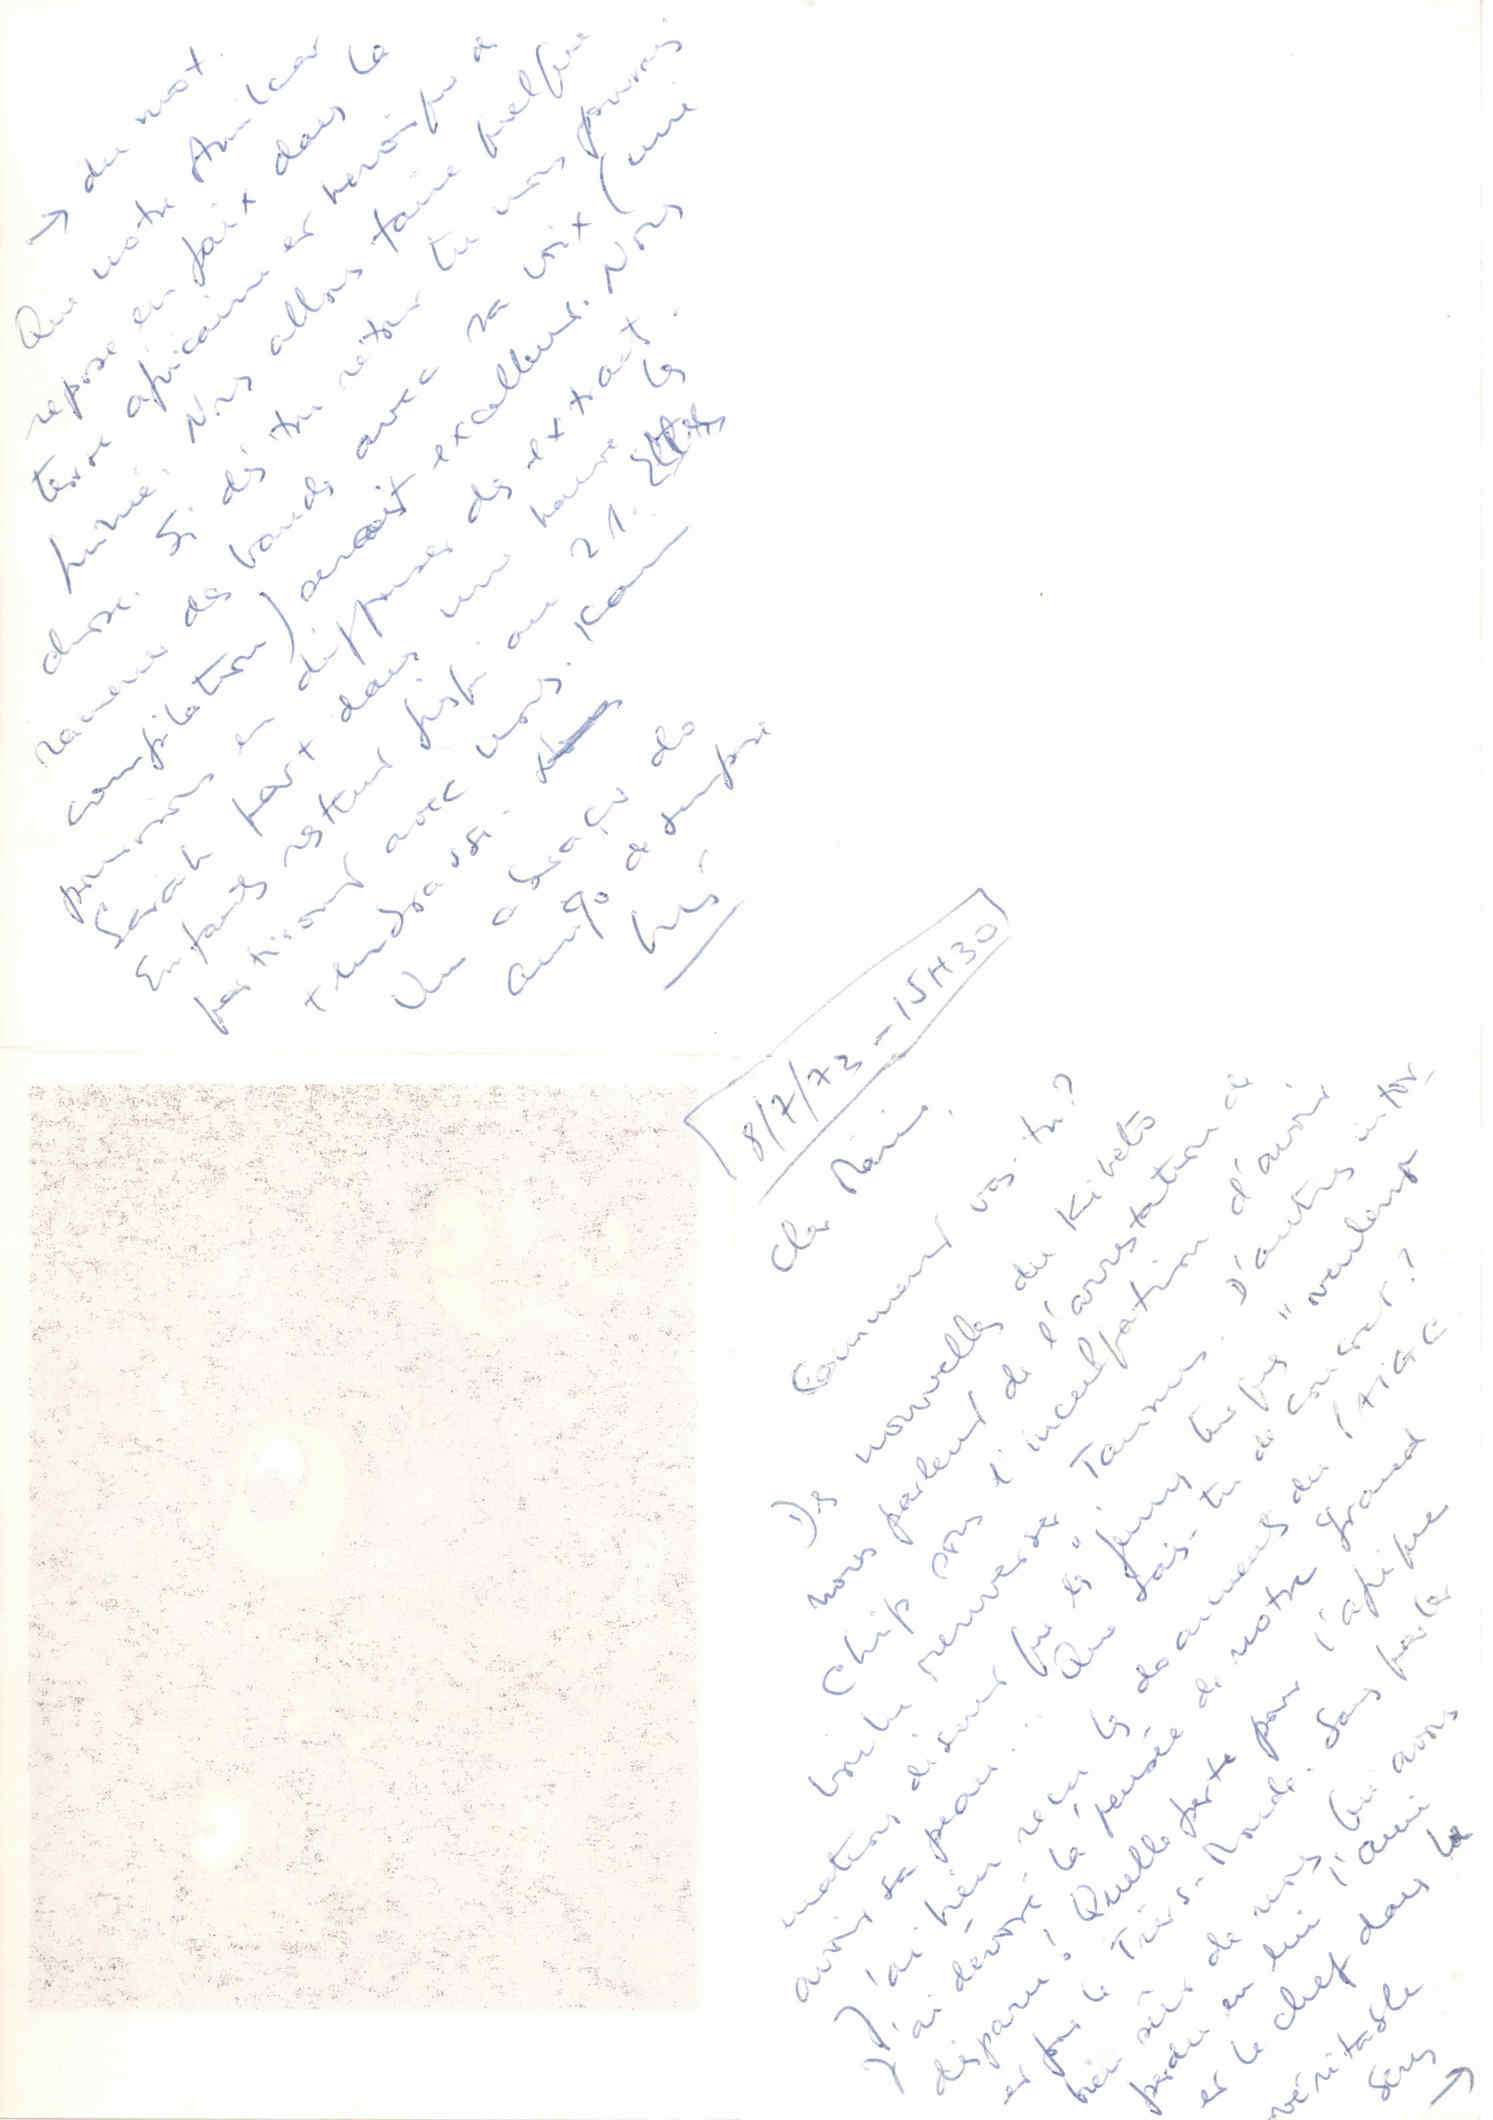 8/7/73 - 15H30
Cher Mario,
Comment vas-tu?
Des nouvelles du Kibets
nous parlent de l'arrestation de
Chip sous l'inculpation d'avoir
voulu renverser Tannus. D'autres infor-
mations disent que les "jeunes turques" veulent
avoir sa peau... Que sais-tu de concret?
J'ai bien reçu les documents du PAIGC
J'ai dévoré la pensée de notre grand
disparu! Quelle perte pour l'Afrique
et pour le Tiers-Monde. Sans parler
bien sûr de nous qui avons
perdu en lui l'ami
et le chef dans le
véritable
sens →
→ du mot.
Que notre Amilcar
repose en paix dans la
terre africaine et héroïque à
Nous allons faire quelque
chose. Si dès ton retour tu nous pouvais
ramener des bandes avec sa voix (une
compilation) serait excellent. Nous
pourrions en diffuser des extraits.
Sarah part dans une heure les
Enfants restent jusqu'au 21.
partiront avec nous. Kam
t'embrasse.
Um abraço do
amigo de sempre